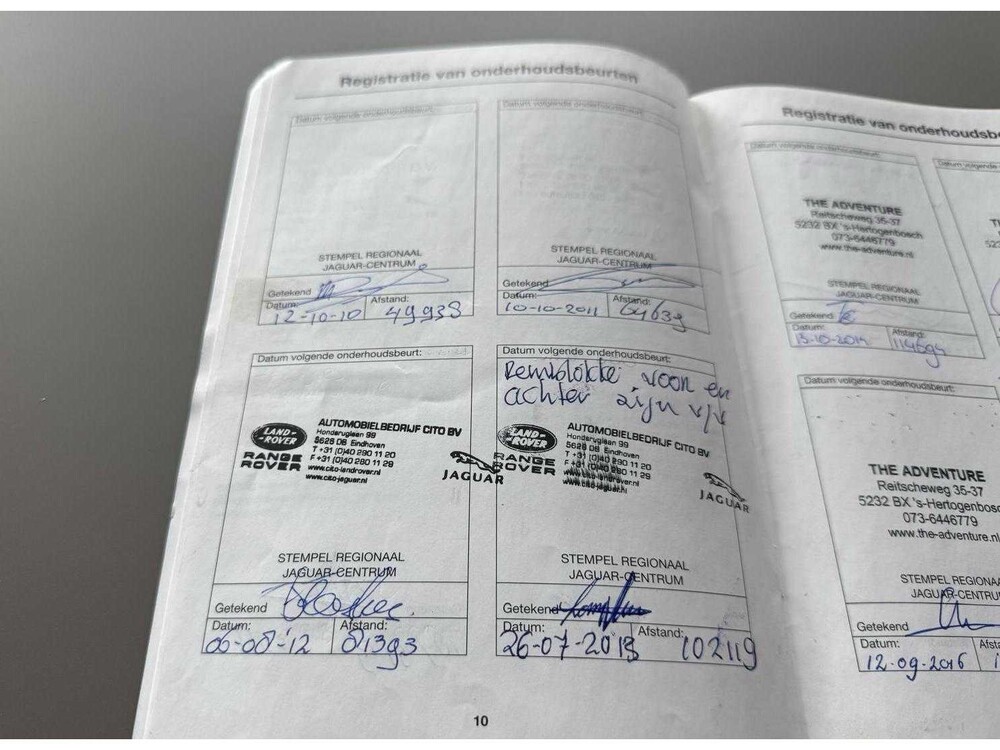 Registratie van onderhoudsbeurten
Datum volgende onderhoudsbeurt:
STEMPEL REGIONAAL
JAGUAR-CENTRUM
Getekend
Datum: Afstand:
12-10-10 49938
Datum volgende onderhoudsbeurt:
STEMPEL REGIONAAL
JAGUAR-CENTRUM
Getekend
Datum: Afstand:
10-10-2011 64639
Datum volgende onderhoudsbeurt:
LAND-ROVER
RANGE ROVER
AUTOMOBIELBEDRIJF CITO BV
Hondsruglaan 99
5628 DB Eindhoven
T +31 (0)40 290 11 20
F +31 (0)40 290 11 29
www.cito-landrover.nl
www.cito-jaguar.nl
JAGUAR
STEMPEL REGIONAAL
JAGUAR-CENTRUM
Getekend
Datum: Afstand:
06-08-'12 81393
Datum volgende onderhoudsbeurt:
Remblokke voor en
achter zijn v/v
LAND-ROVER
RANGE ROVER
AUTOMOBIELBEDRIJF CITO BV
Hondsruglaan 99
5628 DB Eindhoven
T +31 (0)40 290 11 20
F +31 (0)40 290 11 29
www.cito-landrover.nl
www.cito-jaguar.nl
JAGUAR
STEMPEL REGIONAAL
JAGUAR-CENTRUM
Getekend
Datum: Afstand:
26-07-2013 102119
10
Registratie van onderhoudsbe
Datum volgende onderhoudsbeurt:
THE ADVENTURE
Reitscheweg 35-37
5232 BX 's-Hertogenbosch
073-6446779
www.the-adventure.nl
STEMPEL REGIONAAL
JAGUAR-CENTRUM
Getekend
Datum: Afstand:
114694
Datum volgende onderhoudsbeurt:
THE ADVENTURE
Reitscheweg 35-37
5232 BX 's-Hertogenbosc
073-6446779
www.the-adventure.nl
STEMPEL REGIONA
JAGUAR-CENTRU
Getekend
Datum: Afst
12-09-2016